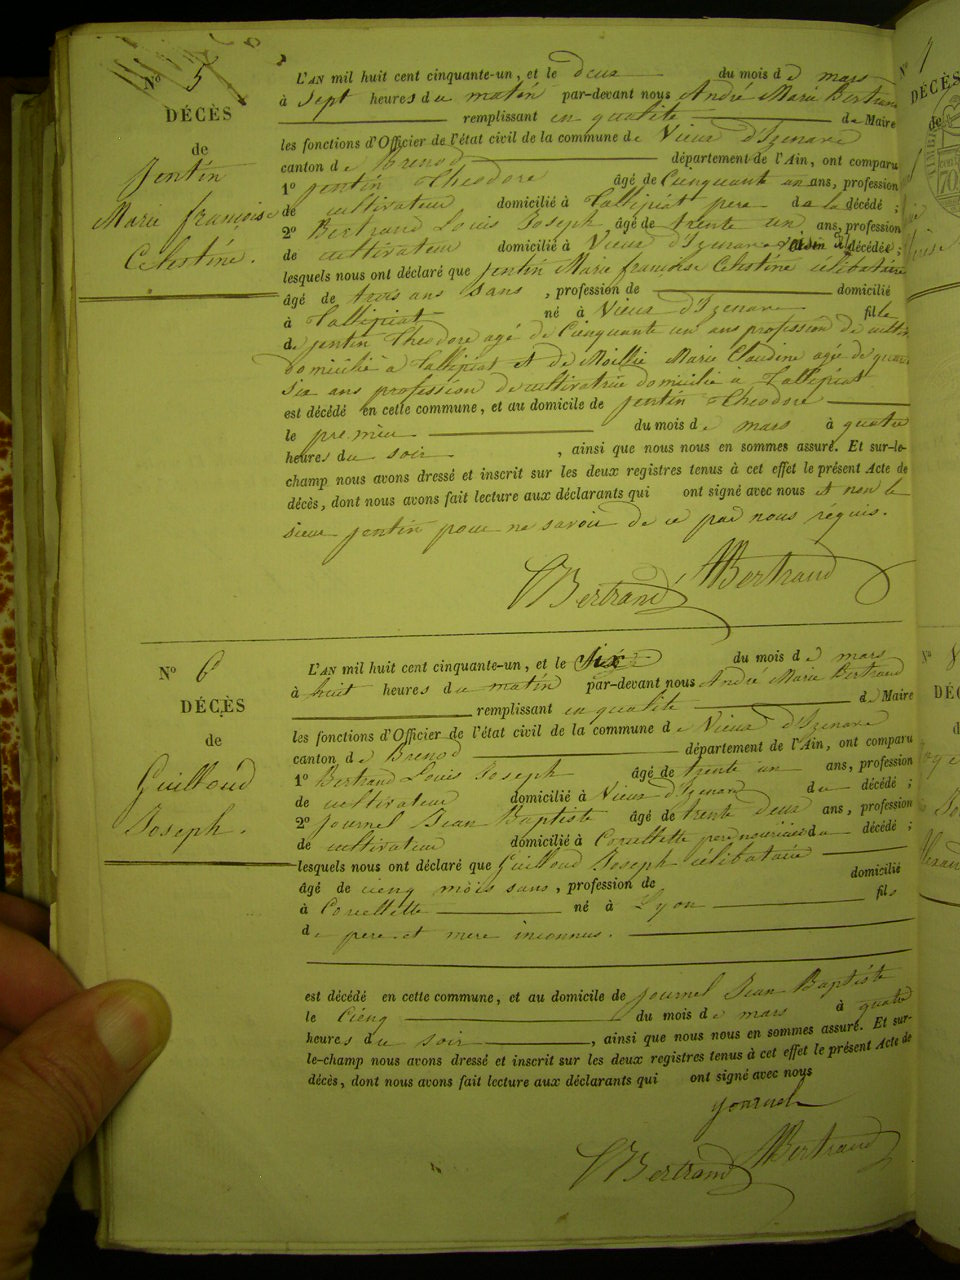 No 5
DÉCÈS
de
Jentin
Marie françoise
Celestine.
L'AN mil huit cent cinquante-un, et le deux du mois de mars
à sept heures du matin par-devant nous André Marie Bertrand
remplissant en qualité de Maire
les fonctions d'Officier de l'état civil de la commune de Vieux d'Izenave
canton de Brenod département de l'Ain, ont comparu
1o Jentin Theodore âgé de Cienquante un ans, profession
de cultivateur domicilié à Tallipiat pere de la décédé ;
2o Bertrand Louis Joseph âgé de trente un ans, profession
de cultivateur domicilié à Vieux d'Izenave voisin de décédée ;
lesquels nous ont déclaré que Jentin Marie françoise Celestine célibataire
âgé de trois ans sans , profession de domicilié
à Tallipiat né à Vieux d'Izenave fille
de Jentin Theodore agé de Cienquante un ans profession de cultiv
domicilié à Tallipiat et de Moillie Marie Claudine agée de quar
six ans profession de cultivatrice domicilié à Tallipiat
est décédé en cette commune, et au domicile de Jentin Theodore
le premier du mois de mars à quatre
heures du soir , ainsi que nous nous en sommes assuré. Et sur-le-
champ nous avons dressé et inscrit sur les deux registres tenus à cet effet le présent Acte de
décès, dont nous avons fait lecture aux déclarants qui ont signé avec nous et non le
sieur Jentin pour ne savoir de ce par nous réquis.
Bertrand Bertrand
No 6
DÉCÈS
de
Guilloud
Joseph.
L'AN mil huit cent cinquante-un, et le six du mois de mars
à huit heures du matin par-devant nous André Marie Bertrand
remplissant en qualité de Maire
les fonctions d'Officier de l'état civil de la commune de Vieux d'Izenave
canton de Brenod département de l'Ain, ont comparu
1o Bertrand Louis Joseph âgé de trente un ans, profession
de cultivateur domicilié à Vieux d'Izenave du décédé ;
2o Journel Jean Baptiste âgé de trente deux ans, profession
de cultivateur domicilié à Corcellette pere nouricier du décédé ;
lesquels nous ont déclaré que Guilloud Joseph célibataire
âgé de cienq mois sans , profession de domicilié
à Corcellette né à Lyon fils
de pere et mere inconnus.
est décédé en cette commune, et au domicile de Journel Jean Baptiste
le Cienq du mois de mars à quatre
heures du soir , ainsi que nous nous en sommes assuré. Et sur-
le-champ nous avons dressé et inscrit sur les deux registres tenus à cet effet le présent Acte de
décès, dont nous avons fait lecture aux déclarants qui ont signé avec nous
Journel
Bertrand Bertrand
No 7
DÉCÈS
de
No 8